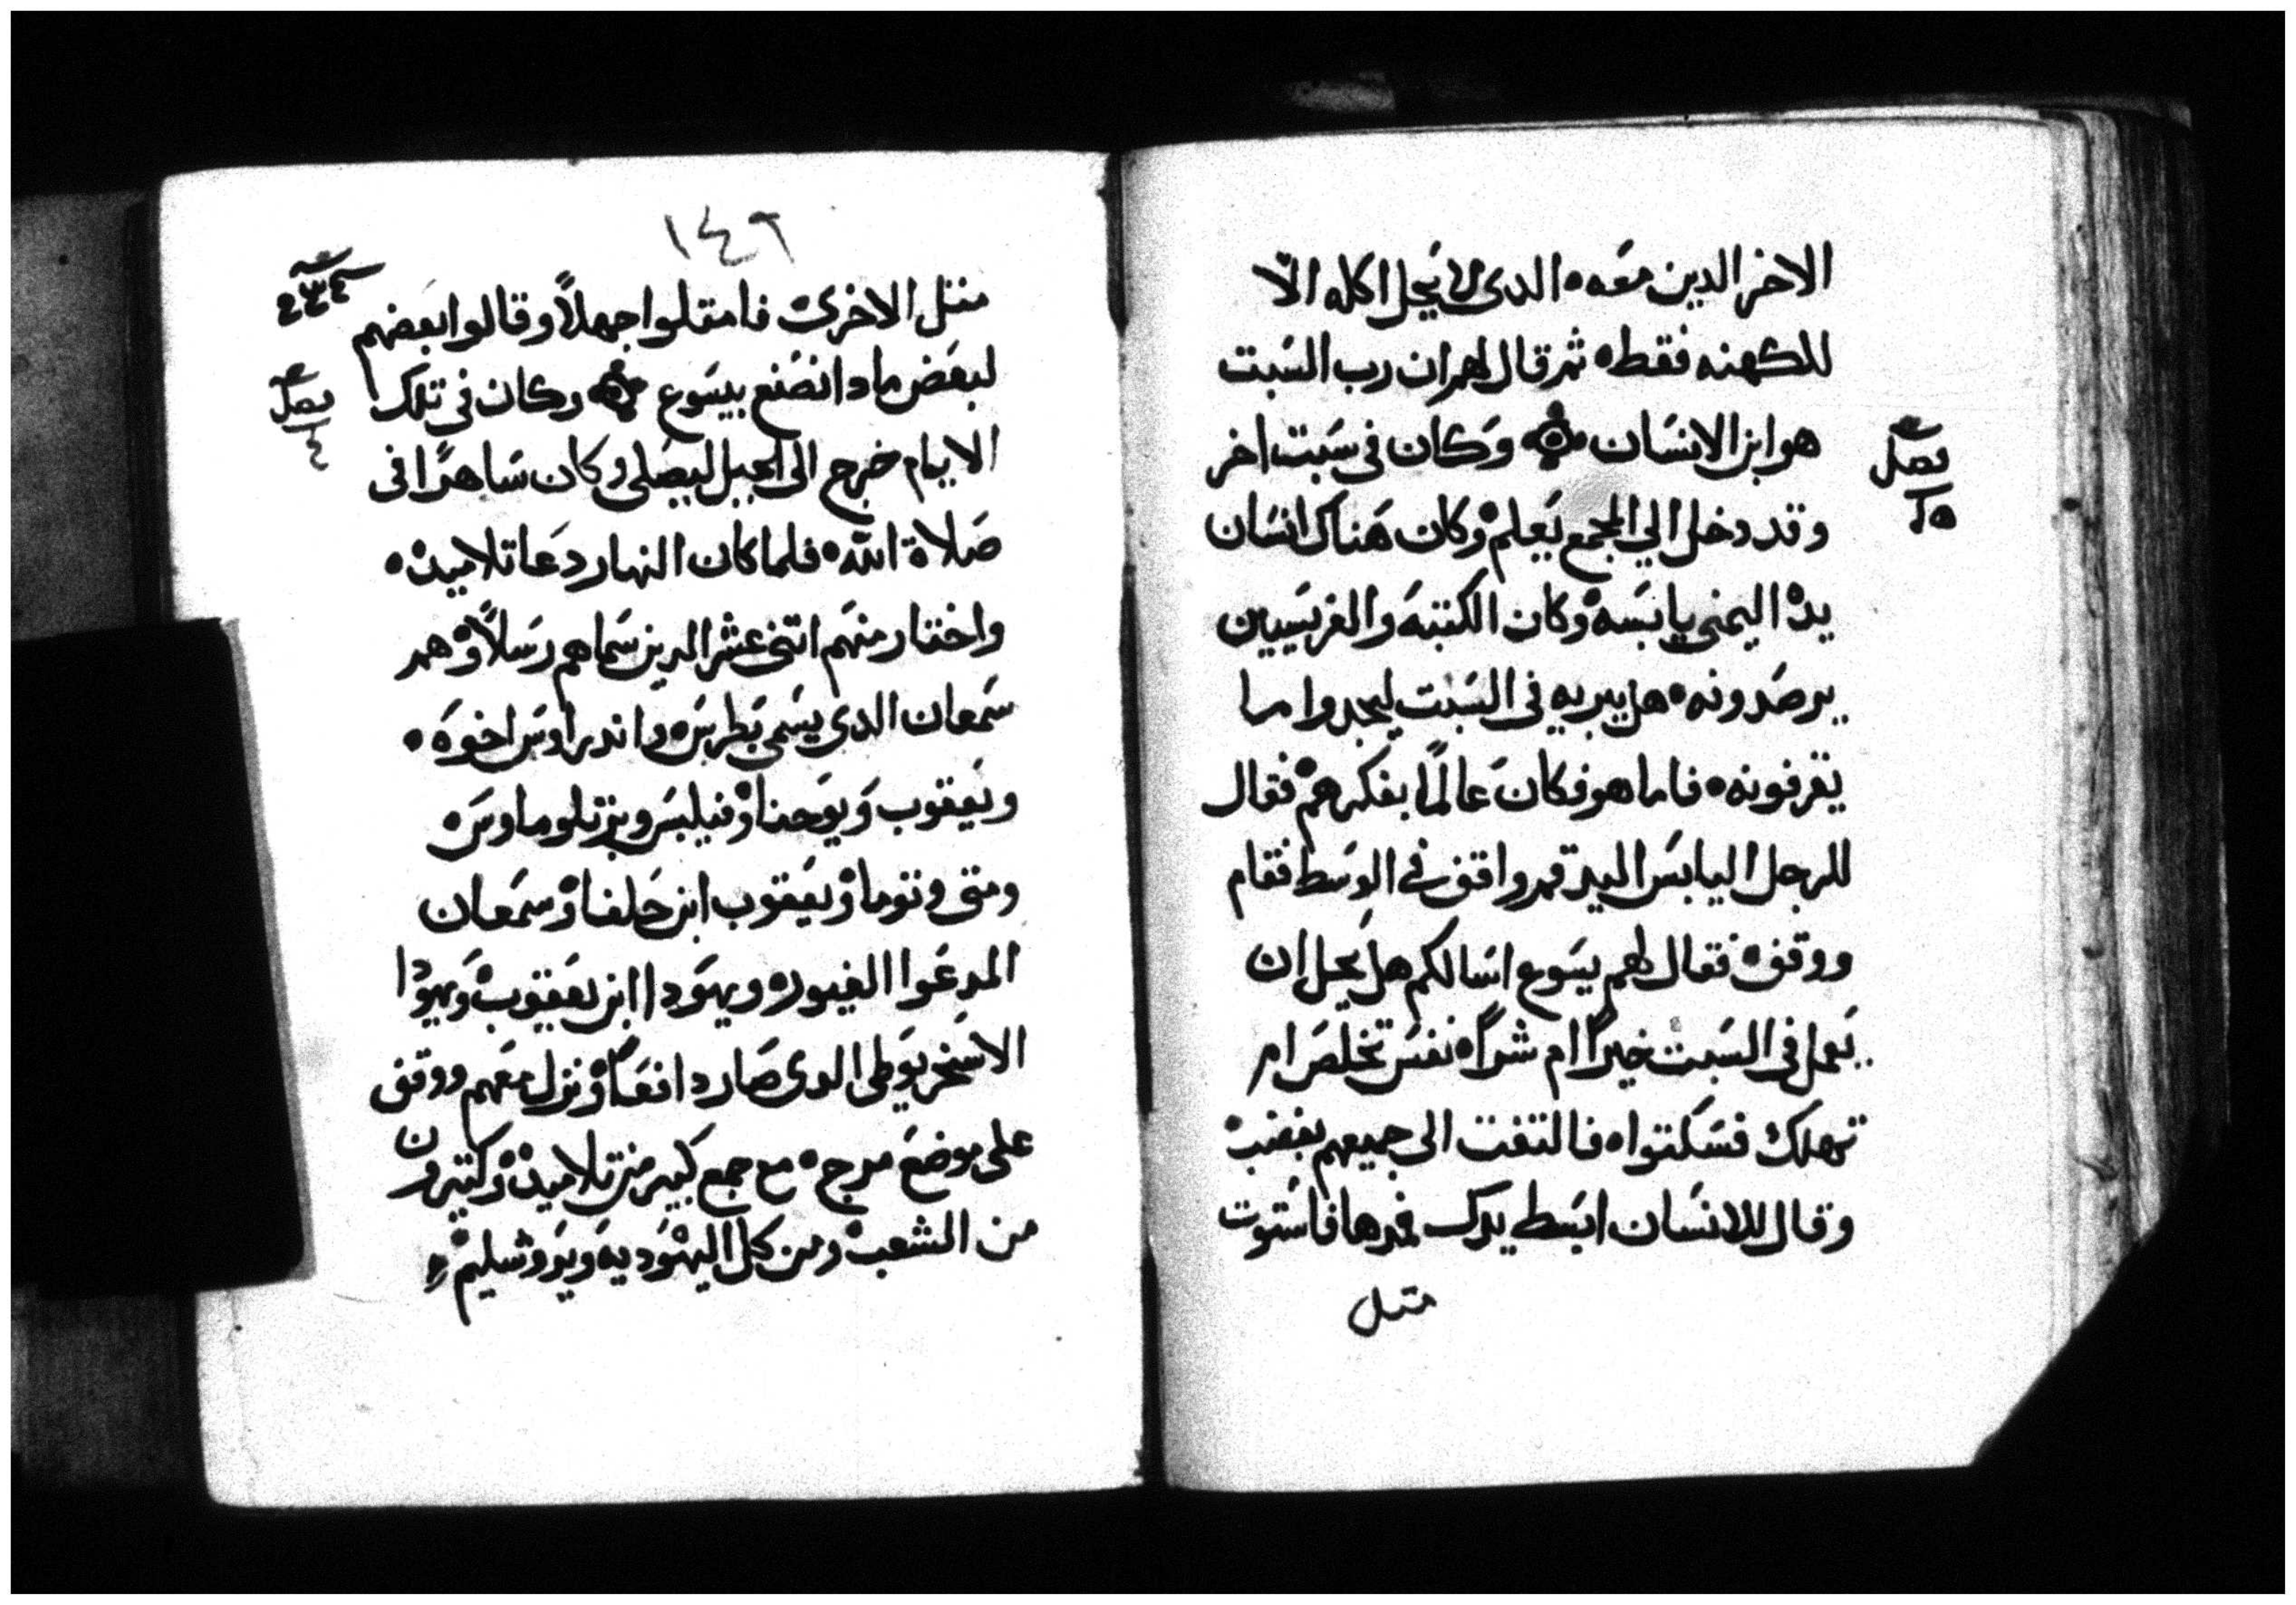 الاخر الدين معه ه الدى لا يحل اكله الا
للكهنه فقط ه ثم قال لهم ان رب السبت
هو ابن الانسان وكان فى سبت اخر
فصل
وقد دخل الي المجمع يعلم ه وكان هناك انسان
يده اليمنى يابسه ه وكان الكتبه والفريسيين
يرصدونه ه هل يبريه فى السبت ليجدوا ما
يقرفونه ه فاما هو فكان عالمًا بفكرهم ه فقال
للرجل اليابس اليد قم واقف في الوسط فقام
ووقف ه فقال لهم يسوع اسالكم هل يحل ان
يعمل فى السبت خيرًا ام شرًا ه نفس تخلص ام
تهلك فسكتوا ه فالتفت الى جميعهم بغضب ه
وقال للانسان ابسط يدك فمدها فاستوت
متل
١٤٦
متل الاخرى ه فامتلوا جهلاً وقالوا بعضهم
لبعض مادا نصنع بيسوع وكان فى تلك
فصل
الايام خرج الى الجبل ليصلى وكان ساهرًا فى
صلاة الله ه فلما كان النهار دعا تلاميده
واختار منهم اتنى عشر الدين سماهم رسلاً ه وهم
سمعان الدى يسمى بطرس ه واندراوس اخوه ه
ويعقوب ويوحنا ه وفيلبس وبرتلوماوس ه
ومتى وتوما ه ويعقوب ابن حلفا ه وسمعان
المدعوا الغيور ه ويهودا ابن يعقوب ه ويهودا
الاسخريوطى الدى صار دافعًا ه ونزل معهم ووقف
على موضع مرج ه مع جمع كبير من تلاميده ه وكتيرون
من الشعب ه ومن كل اليهوديه ويروشليم ه